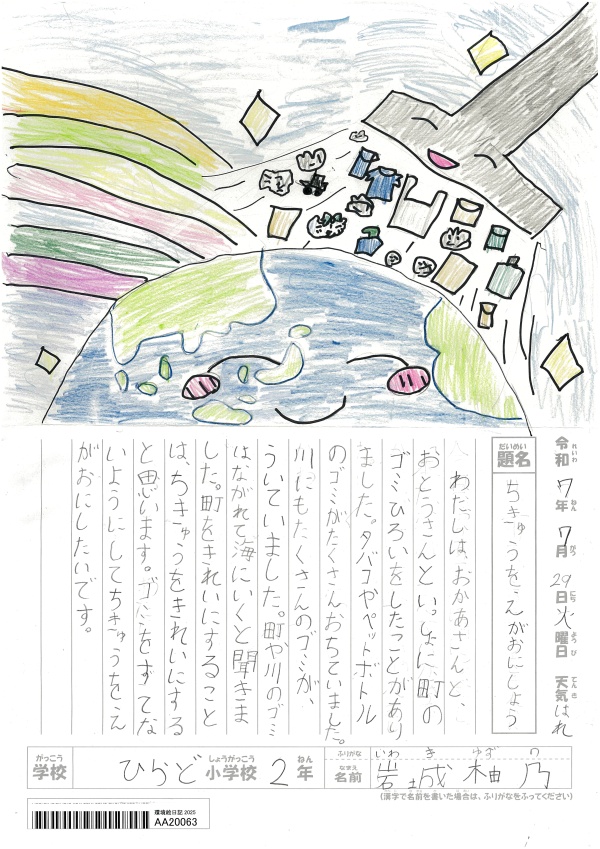 令和7年7月29日火曜日 天気はれ
れいわ ねん がつ にち ようび てんき
だいめい
題名
ちきゅうをえがおにしよう
わたしは、おかあさんと、
おとうさんといっしょに町の
ゴミひろいをしたことがあり
ました。タバコやペットボトル
のゴミがたくさんおちていました。
川にもたくさんのゴミが、
ういていました。町や川のゴミ
はながれて海にいくと聞きま
した。町をきれいにすること
は、ちきゅうをきれいにする
と思います。ゴミをすてな
いようにしてちきゅうをえ
がおにしたいです。
がっこう
学校
ひらど小学校2年
しょうがっこう ねん
ふりがな いわ き ゆず の
なまえ
名前 岩城柚乃
(漢字で名前を書いた場合は、ふりがなをふってください)
環境絵日記 2025
AA20063